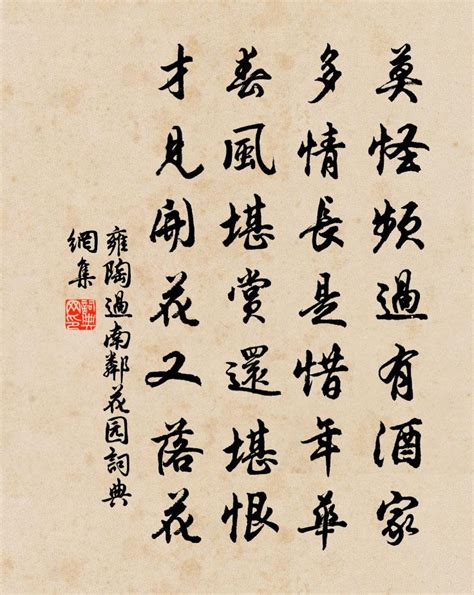 莫怪频過有酒家
多情長是惜年華
春風堪賞還堪恨
才見開花又落花
雍陶過南鄰花园詞典
網集
詞典网印